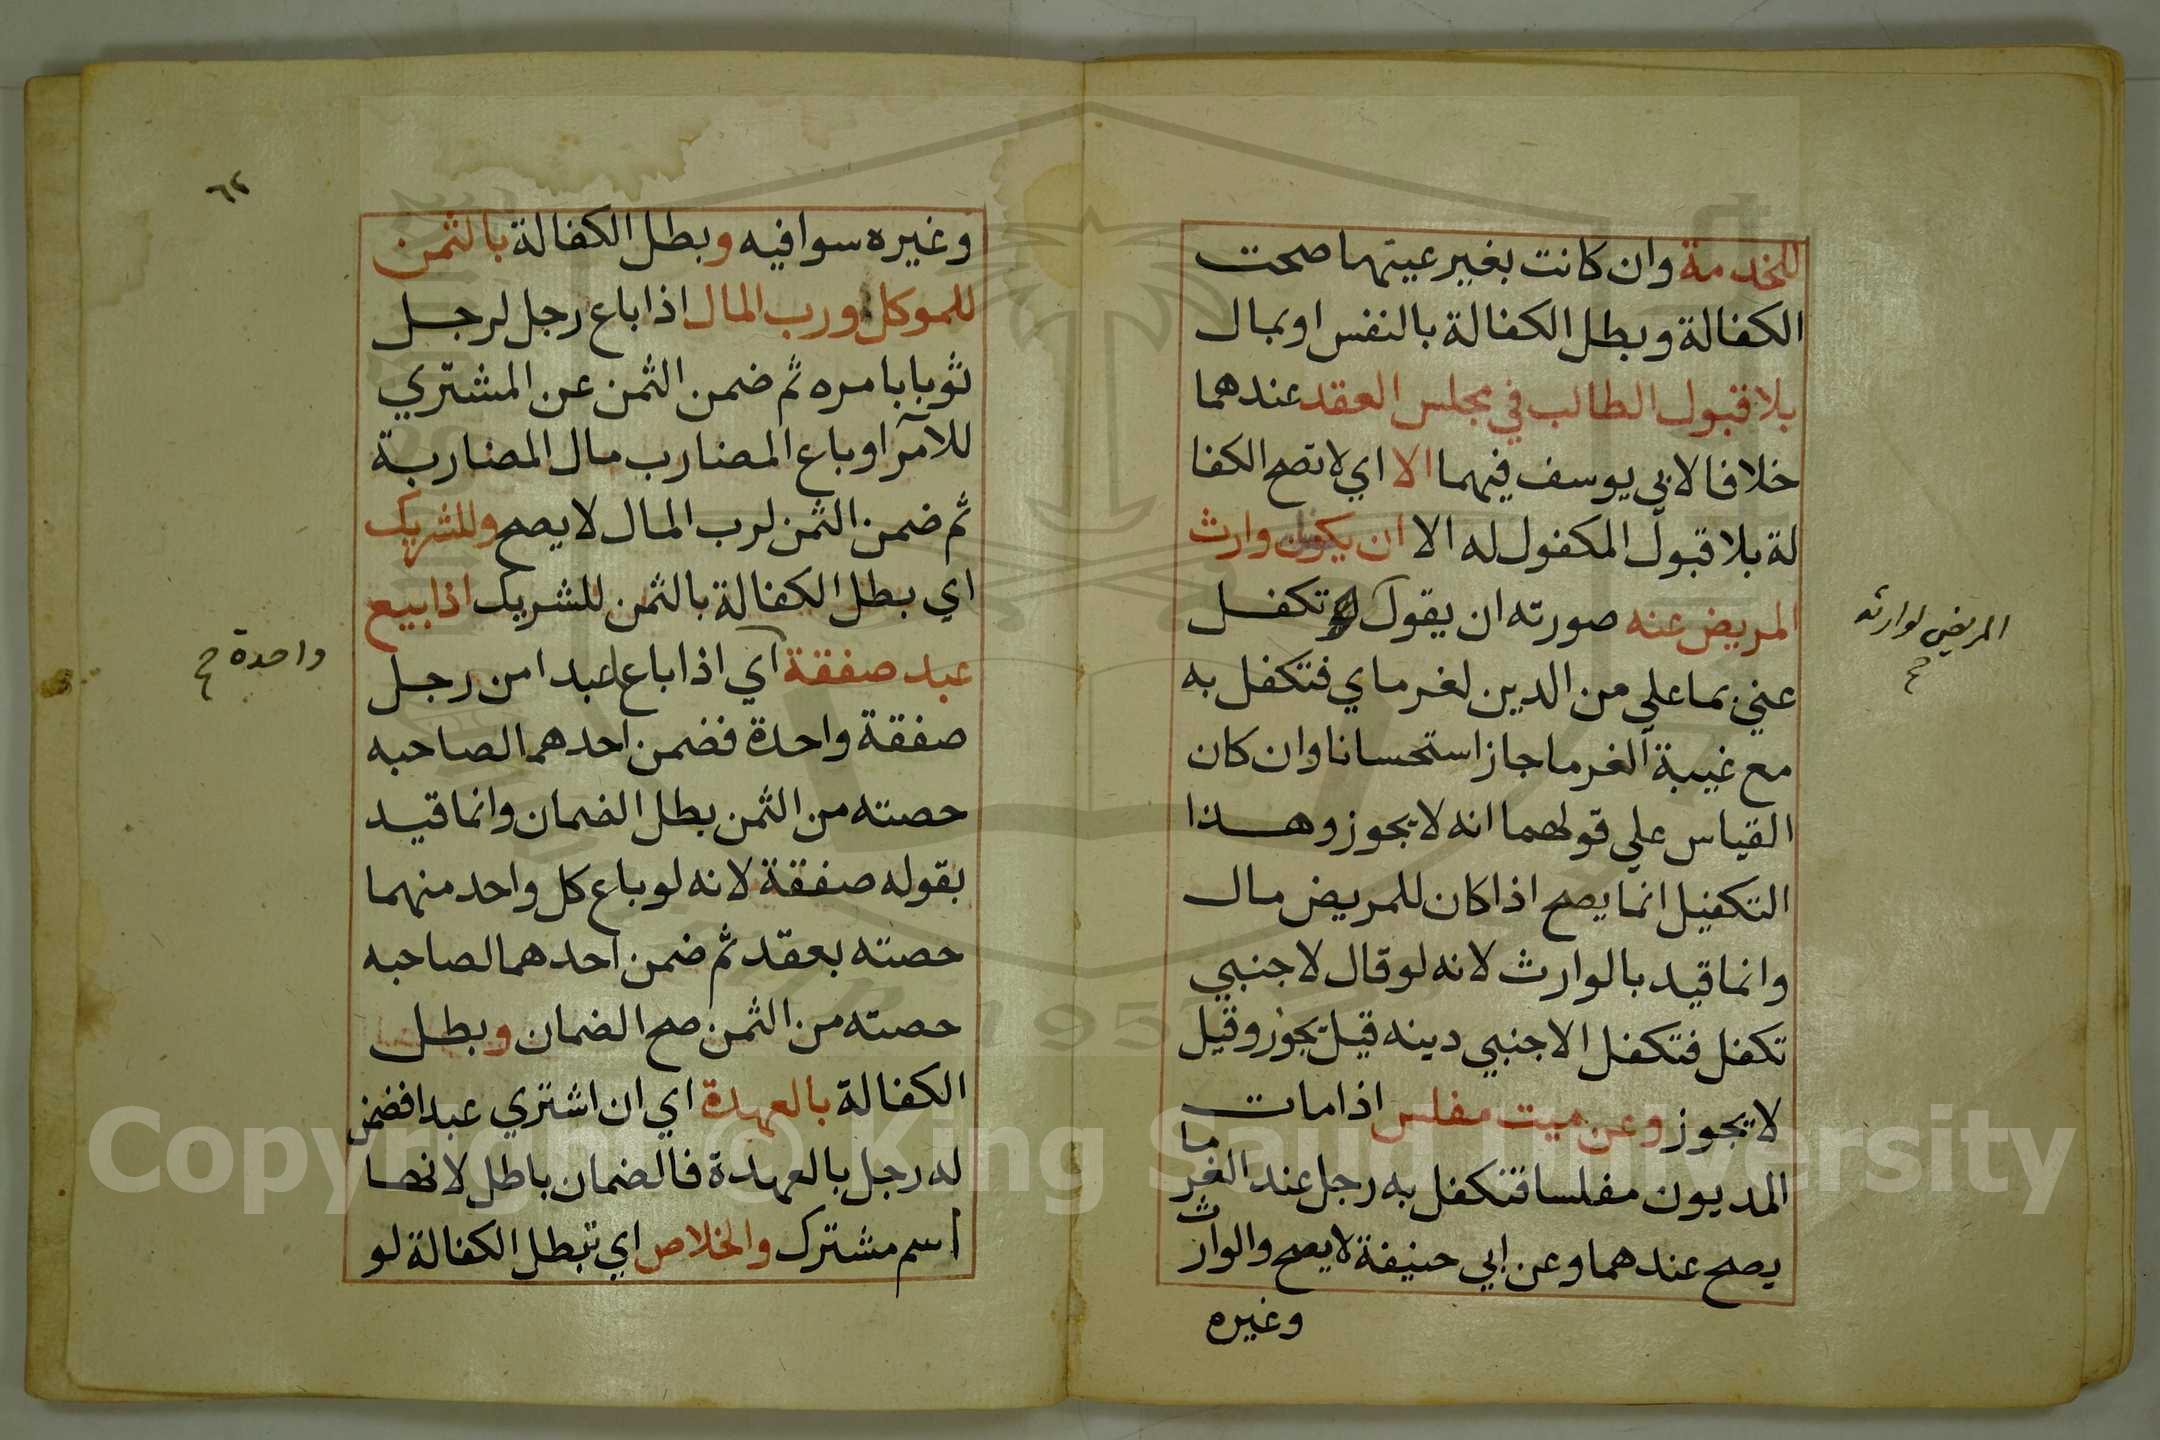 للخدمة وان كانت بغير عينها صحت
الكفالة وبطل الكفالة بالنفس او بمال
بلا قبول الطالب في مجلس العقد عندهما
خلافا لابي يوسف فيهما الا اي لا تصح الكفا
لة بلا قبول المكفول له الا ان يكفل وارث
المريض عنه صورته ان يقول تكفل
المريض لوارثه
صح
عني بما علي من الدين لغرماي فتكفل به
مع غيبة الغرما جاز استحسانا وان كان
القياس علي قولهما انه لا يجوز وهذا
التكفيل انما يصح اذا كان للمريض مال
وانما قيد بالوارث لانه لو قال لاجنبي
تكفل فتكفل الاجنبي دينه قيل يجوز وقيل
لا يجوز وعن ميت مفلس اذا مات
المديون مفلسا فتكفل به رجل عند الغرما
يصح عندهما وعن ابي حنيفة لا يصح والوارث
وغيره
٦٢
وغيره سوا فيه وبطل الكفالة بالثمن
للموكل ورب المال اذا باع رجل لرجل
ثوبا بامره ثم ضمن الثمن عن المشتري
للآمر او باع المضارب مال المضاربة
ثم ضمن الثمن لرب المال لا يصح وللشريك
اي بطل الكفالة بالثمن للشريك اذا بيع
عبد صفقة اي اذا باعا عبدا من رجل
واحدة صح
صفقة واحدة فضمن احدهما لصاحبه
حصته من الثمن بطل الضمان وانما قيد
بقوله صفقة لانه لو باع كل واحد منهما
حصته بعقد ثم ضمن احدهما لصاحبه
حصته من الثمن صح الضمان وبطل
الكفالة بالعهدة اي ان اشتري عبدا فضمن
له رجل بالعهدة فالضمان باطل لانها
اسم مشترك والخلاص اي تبطل الكفالة لو
Copyright © King Saud University
1957